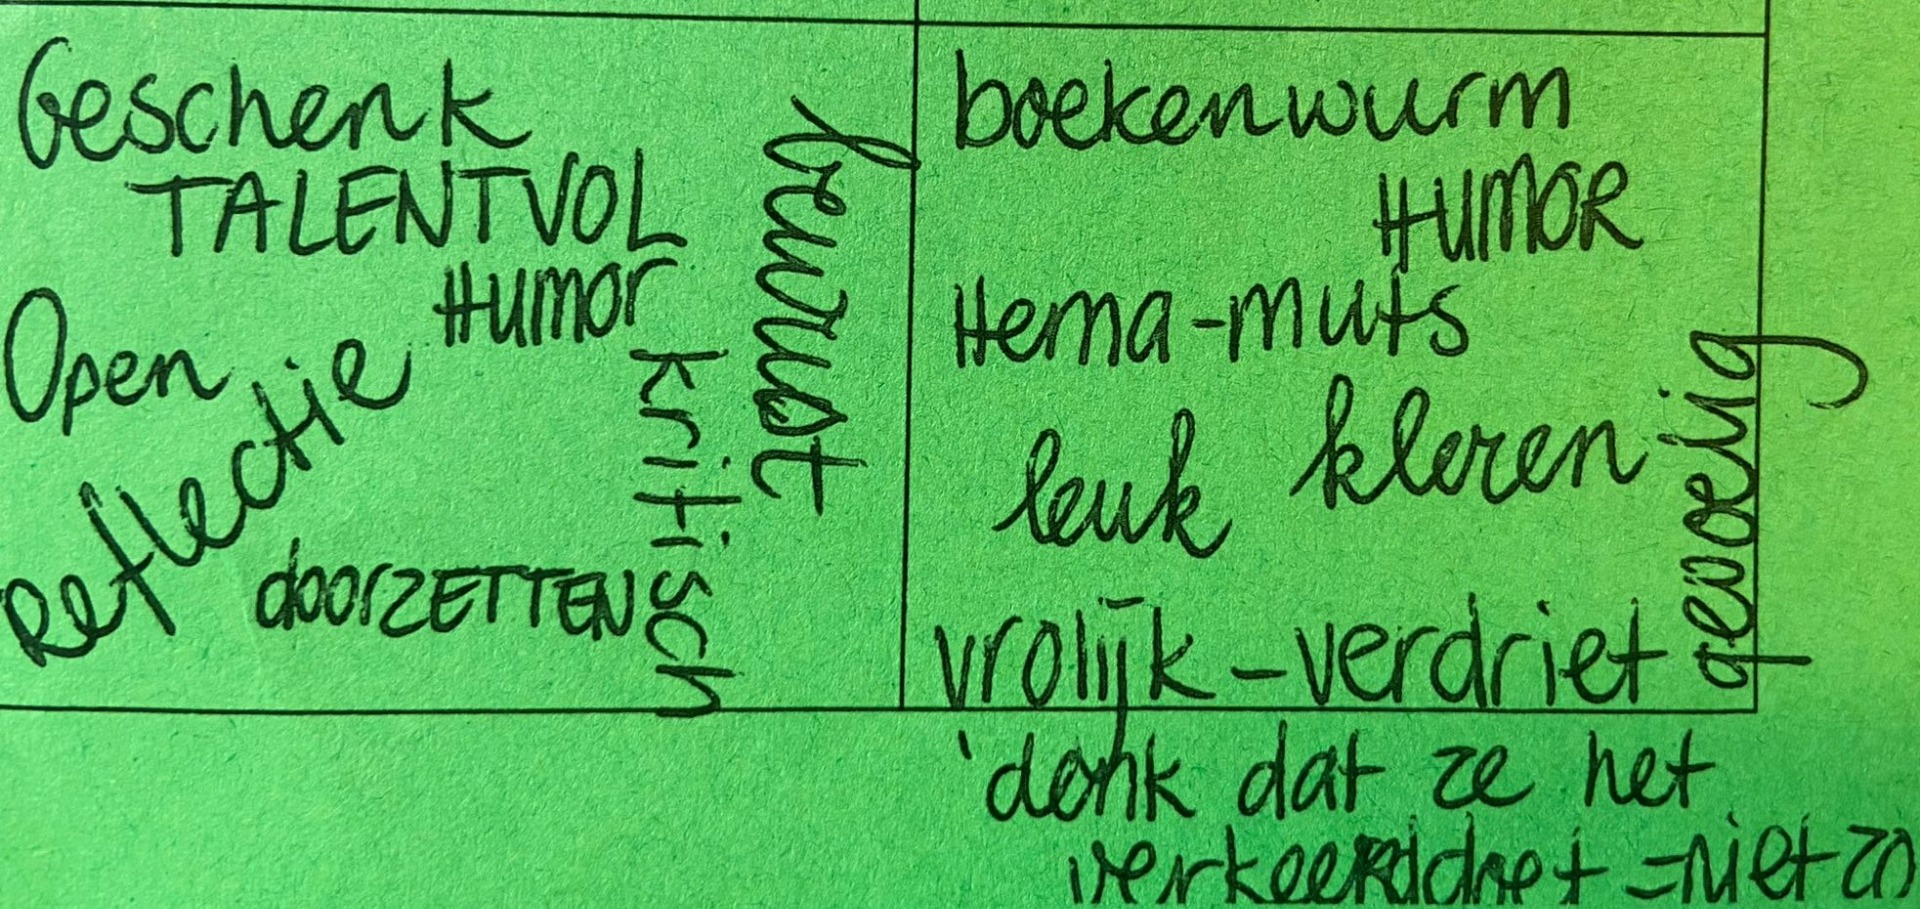 Geschenk
TALENTVOL
Humor
Open
Reflectie
doorZETTEN
kritisch
bewust
boekenwurm
HUMOR
Hema-muts
leuk kleren
gevoelig
vrolijk - verdriet
'denk dat ze het
verkeerd doet = niet zo